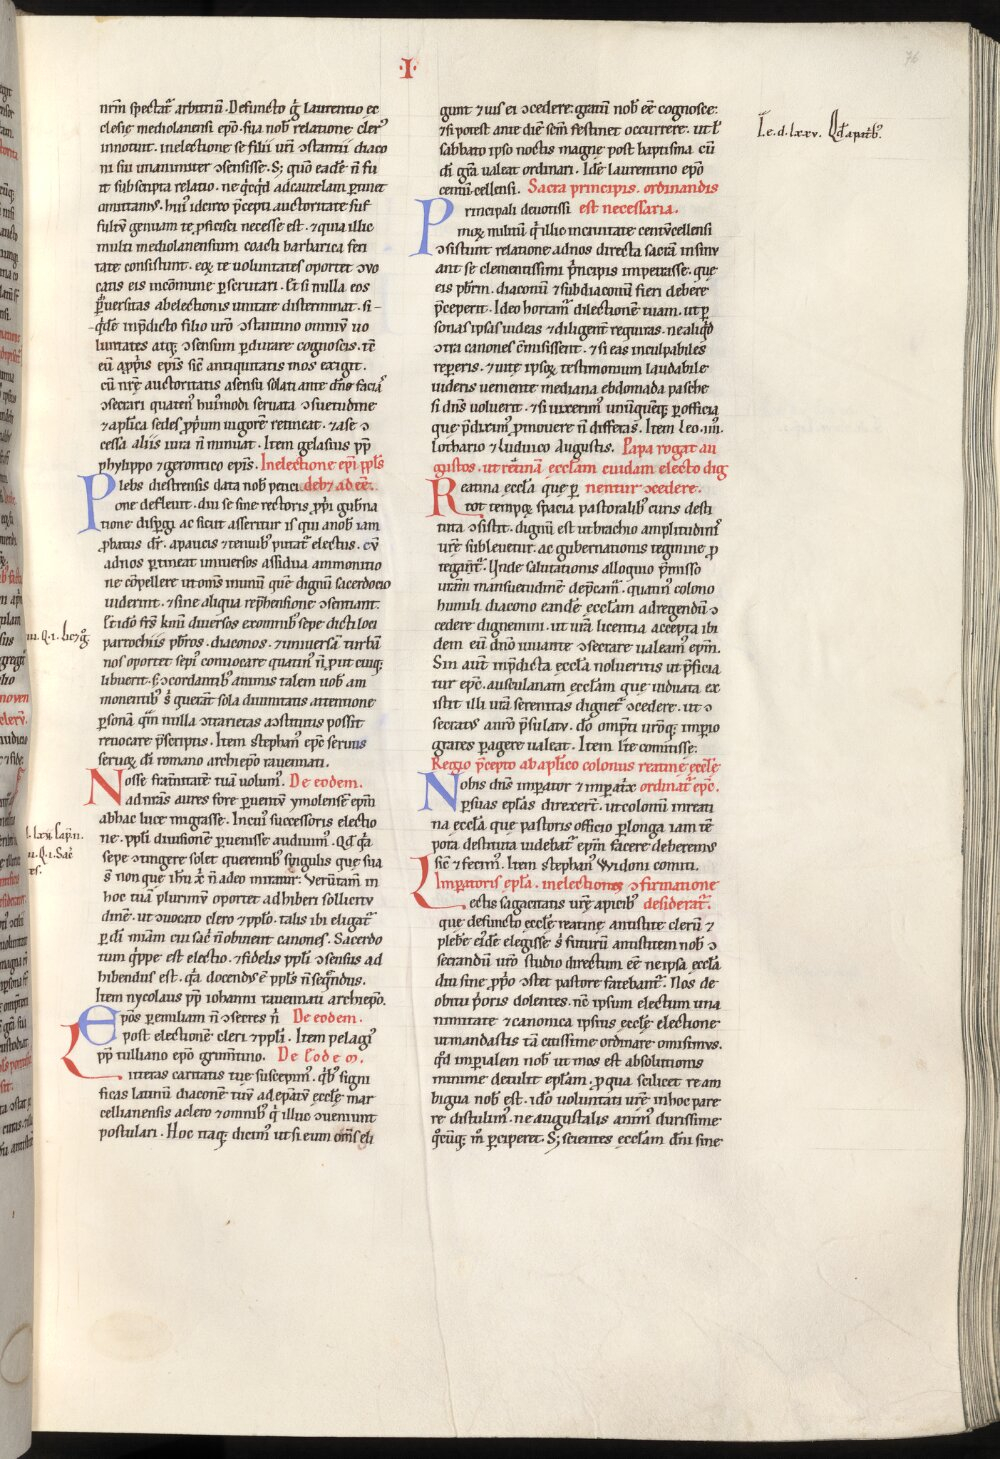 ·I·
76
nrm spectat arbitriū. Defuncto g̃ laurentio ec
clesie mediolanensi epo. sua nob relatione cler᷒
innotuit. inelectione se filii uri ɔstantii diaco
ni sui unanimiter ɔsensisse. S; quo eadē ñ fu
it subscripta relatio. ne q̇cq̇d adcautelam ptinet
omittam᷒. hui᷒ idcirco p̄cepti auctoritate suf
fultū genuam te pficisci necesse est. ⁊ quia illic
multi mediolanensium coacti barbarica feri
tate consistunt. eoꝝ te uoluntates oportet ɔuo
catis eis incōmune pscrutari. Et si nulla eos
puersitas abelectionis unitate disterminat. si-
-q̇dē inp̄dicto filio uro ɔstantino omniū uo
luntates atq; ɔsensum pdurare cognoscis. tē
eū app̃is epis sic̄ antiquitatis mos exigit.
cū nr̄e auctoritatis asensu solati ante dn̄o facia᷒
ɔsecrari quaten᷒ hui᷒modi seruata ɔsuetudine
⁊ aplica sedes pp̃ium uigore retineat. ⁊ ase ɔ
cessa aliis iura ñ minuat. Item gelasius pp
phylippo ⁊ gerontico epis. Inelectione epi ppl̃s
Plebs diestrensis data nob petici debꝫ adeē.
one defleuit. diu se sine rectoris ppi gub̃na
tione disp̃gi ac sicut asseritur is qui anob iam
pbatus dr̄. apaucis ⁊ tenuib᷒ putat electus. eū
adnos ptineat uniuersos assidua ammonitio
ne cōpellere ut omīs inunū quē dignū sacerdocio
uiderint. ⁊ sine aliqua rep̄hensione ɔsentiant.
Et idō fr̄s kmi diuersos exomnib᷒ sepe dicti loci
parrochiis pbros. diaconos. ⁊ uniuersā turbā
nos oportet sepi᷒ conuocare quatin᷒ ñ put cuiq;
libuerit. s; ɔcordantib᷒ animis talem uob am
monentib᷒ s̄ querāt sola diuinitatis attentione
psonā. q̄m nulla ɔtrarietas aɔstitutis possit
reuocare p̄scriptis. Item stephan᷒ epc seruus
seruoꝝ di romano archiepo rauennati.
Nosse frat̃nitatē tuā uolum᷒. De eodem.
adnras aures fore puentū ymolensē epm
abhac luce migrasse. Incui᷒ successoris electio
ne. ppli diuisionē puenisse audiuim᷒. Qd q̃a
sepe ɔtingere solet querentib᷒ singulis que sua
s̄ non que ihu x̄ ñ adeo mirat̃ur. Uerūtam in
hoc tuā plurimū oportet adhiberi sollicitu
dinē. ut ɔuocato clero ⁊ pplo. talis ibi eligat᷒
p di miam cui sac̄ ñ obuient canones. Sacerdo
tum q̇ppe est electio. ⁊ fidelis ppli ɔsensus ad
hibendus est. q̃a docendus ē ppl̃s ñ seq̃ndus.
Item nycolaus pp iohanni rauennati archiepo.
Epos p emiliam ñ ɔsecres ñ De eodem.
post electionē cleri ⁊ ppli. Item pelagi᷒
pp tulliano epo grum̃tino. De Eodem.
Litteras caritatis tue suscepim᷒. q̇b᷒ signi
ficas Latinū diaconē tuū adepatū ecclę mar
cellianensis aclero ⁊ omnib᷒ q̇ illuc ɔueniunt
postulari. Hoc itaq; dicim᷒ ut si eum om̄s eli
gunt ⁊ uis ei ɔcedere: gratū nob eē cognosce:
⁊ si potest ante diē sc̄m festinet occurrere. ut ł
sabbato ipso noctis magne post baptisma cū
di gr̄a ualeat ordinari. Idē laurentino epo
centū cellensi. Sacra principis. ordinandis
Principali deuotissi est necessaria.
moꝝ militū q̇ illic inciuitate centūcellensi
ɔsistunt relatione adnos directa sacrā insinu
ant se clementissimi p̃ncipis impetrasse. que
eis pbrm. diaconū ⁊ subdiaconū fieri debere
p̄ceperit. Ideo hortam᷒ dilectionē tuam. ut p
sonas ipsas uideas ⁊ diligent̃ requiras. ne aliq̇d
ɔtra canones cōmisissent. ⁊ si eas inculpabiles
repperis. ⁊ uite ipsoꝝ testimonium laudabile
uideris ueniente mediana ebdomada pasche
si dn̄s uoluerit. ⁊ si uixerim᷒ unūquēq; p officia
que p̄dixim᷒ pmouere ñ differas. Item Leo .iiii.
Lothario ⁊ Luduico Augustis. Papa rogat au
gustos. ut retīnā eccłam cuidam electo dig
Reatina eccła que p nentur ɔcedere.
tot tempoꝝ spacia pastoralib᷒ curis desti
tuta ɔsistit. dignū est ut brachio amplitudinis
ur̄e subleuetur. ac gubernationis tegmine p
tegāt᷒. Unde salutationis alloquio p̄misso
ur̄am mansuetudinē dep̄cam᷒. quatin᷒ colono
humili diacono eandē eccłam adregendū ɔ
cedere dignemini. ut ur̄a licentia accepta ibi
dem eū dn̄o iuuante ɔsecrare ualeam᷒ epm.
Sin aut̄ inp̄dicta eccła nolueritis ut p̄ficia
tur epc. ausculanam ecclam que induata ex
istit illi ur̄a serenitas dignet᷒ ɔcedere. ut ɔ
secratus anro p̄sulatu. do omp̄ti uroq; imperio
grates pagere ualeat. Item Lr̄e comitisse.
Regio p̄cepto ab aplico colonus reatine ecclę
Nobis dn̄s imperator ⁊ imp̄at̃x ordinat᷒ epc.
psuas ep̄las direxer̄t. ut colonū inreati
na eccła que pastoris officio plonga iam tē
pora destituta uidebat᷒ epm facere deberems
sic̄ ⁊ fecim᷒. Item stephan᷒ Widoni comiti.
Imperatoris ep̄la. inelectiones ɔfirmatione
Lectis sagacitatis ur̄e apicib᷒ desiderat᷒.
que defuncto ecclę reatine antistite clerū ⁊
plebē ei᷒dē elegisse s̄ futurū antistitem nob ɔ
secrandū uro studio directum eē ne ipsa eccła
diu sine pprio ɔstet pastore fatebant᷒. Nos de
obitu p̃oris dolentes. nc̄ ipsum electum una
nimitate ⁊ canonica ipsius ecclę electione
ut mandastis tā citissime ordinare omisim᷒.
qd impialem nob ut mos est absolutionis
minime detulit ep̄lam. p qua scilicet re am
bigua nob est. ido uoluntati ur̄e inhoc pare
re distulim᷒. ne augustalis anim᷒ durissime
q̃cūq; m̄ pciperet. S; scientes eccłam dni sine
I. e. d. lxxv. Qd apatrib᷒.
iii. Q. i. lic̄ ⁊ g̃